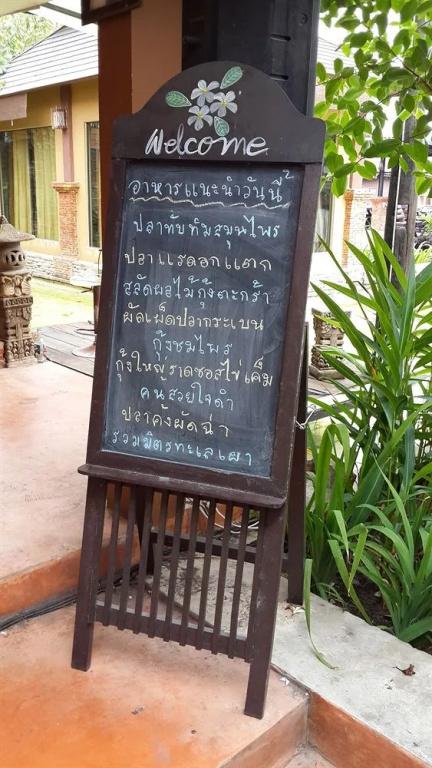 Welcome
อาหารแนะนำวันนี้
ปลาทับทิมสมุนไพร
ปลาแรดอกแตก
สลัดผลไม้กุ้งตะกร้า
ผัดเผ็ดปลากระเบน
กุ้งชมไพร
กุ้งใหญ่ราดซอสไข่เค็ม
คนสวยใจดำ
ปลาคังผัดฉ่า
รวมมิตรทะเลเผา